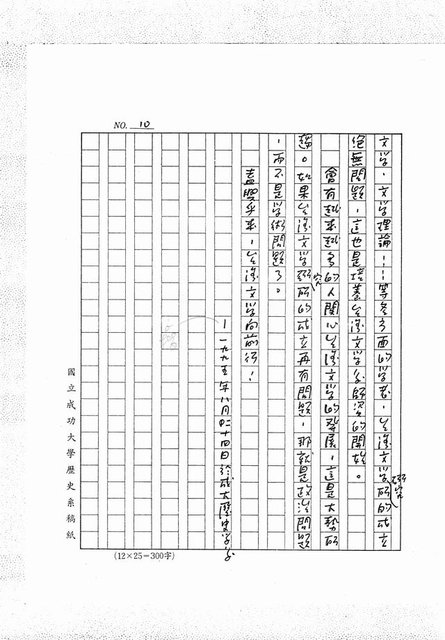 NO. 10
文學、文學理論……等各方面的學者,台灣文學研究所的成立
絕無問題,這也是培養台灣文學系師資的開始。
會有越來越多的人關心台灣文學的發展,這是大勢所
趨。如果台灣文學研究所的成立再有問題,那就是政治問題
,而不是學術問題了。
盍興乎來,台灣文學向前行!
—一九九五年八月廿四日於成大歷史學系
國立成功大學歷史系稿紙
(12×25=300字)